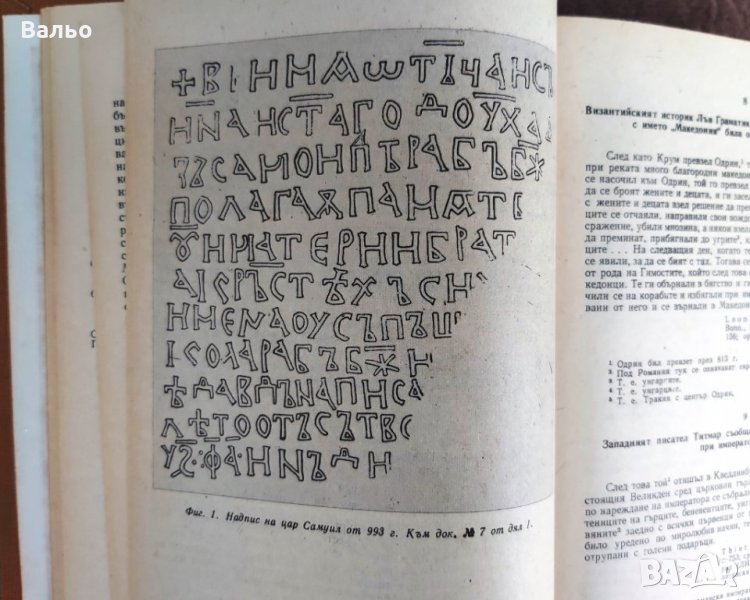 Вальо
+ ВЬ ИМѦ ѠТЬЦА И СЪ
ИНА И СТАГО ДОУХА
ЗЪ САМОИЛЪ РАБЪ БЖ
ПОЛАГАѪ ПАМѦТ
И МАТЕРИ И БРАТ
КРЪСТѢХЪ СИ
ИМЕНА ОУСЪПЪШ
КОЛА РАБЪ БЖИ
ѢДАВДЪ НАПИСА
ЛѢТО ОТЪ СЪТВО
ꙊФА ИНЪДИ
Фиг. 1. Надпис на цар Самуил от 993 г. Към док. № 7 от дял I.
8
Византийският историк Лъв Граматик
с името „Македония" била
След като Крум превзел Одрин,¹
при реката много благородни македон
се насочил към Одрин, той го превзел
да се броят жените и децата, и ги засел
с жените и децата взел решение да пре
ците се отчаяли, направили свои вожд
сражение, убили мнозина, а някои взел
да преминат, прибягнали до угрите³,
ците . . . На следващия ден, когато те
се явили, за да се бият с тях. Тогава се
от рода на Гимостите, който след това
кедонци. Те ги обърнали в бягство и ги
чили се на корабите и избягали при им
вани от него и се върнали в Македон
Leon
Bonn.,
156; ор
1. Одрин бил превзет през 813 г.
2. Под Романия тук се означават
3. Т. е. унгарците.
4. Т. е. унгарците.
5. Т. е. Тракия с център Одрин.
9
Западният писател Титмар съобщ
при императо
След това той¹ отишъл в Кведлинбу
стоящия Великден сред църковни тър
по нареждане на императора се събрал
тениците на гърците, беневентците, унг
вяните² заедно с всички първенци от ц
било уредено по миролюбив начин, т
отрупвани с големи подаръци.
Thiet
BAZAR